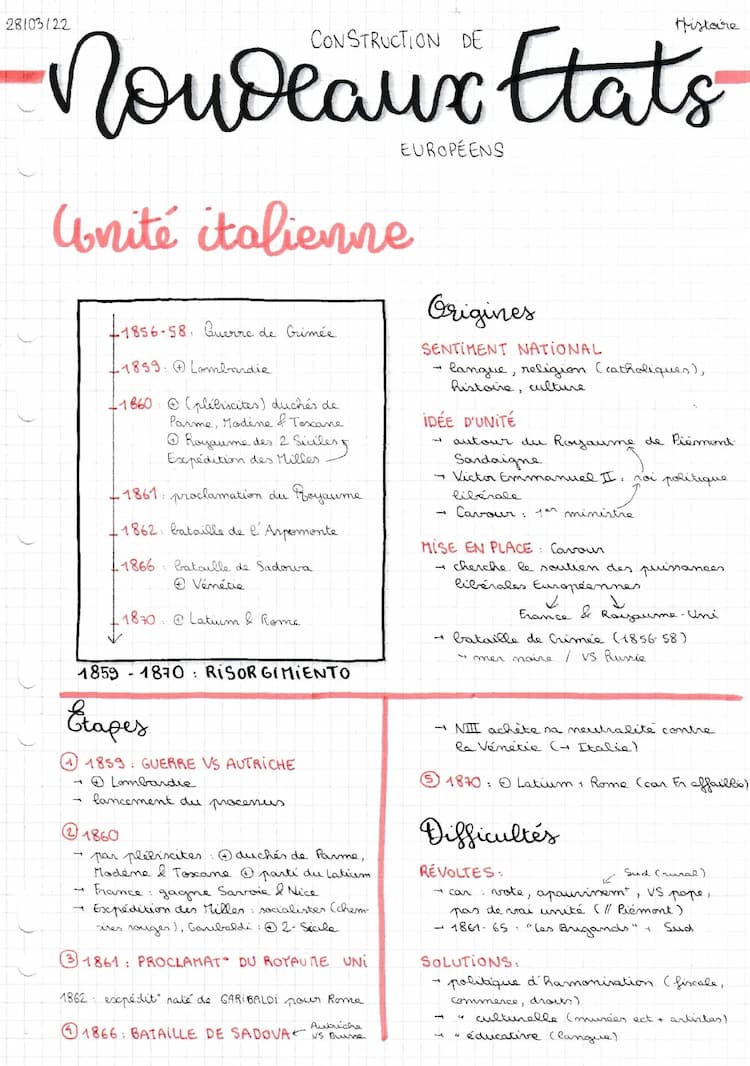 28/03/22
Histoire
CONSTRUCTION DE
Nouveaux Etats
EUROPÉENS
Unité italienne
1856-58 : Guerre de Crimée
1859 : ⊕ Lombardie
1860 : ⊕ (plébiscites) duchés de
Parme, Modène & Toscane
⊕ Royaume des 2 Siciles
Expédition des Milles
1861 : proclamation du Royaume
1862 : bataille de l'Aspomonte
1866 : bataille de Sadowa
⊕ Vénétie
1870 : ⊕ Latium & Rome
1859 - 1870 : RISORGIMIENTO
Origines
SENTIMENT NATIONAL
→ langue, religion (catholiques),
histoire, culture
IDÉE D'UNITÉ
→ autour du Royaume de Piémont-
Sardaigne
→ Victor Emmanuel II : roi politique
libérale
→ Cavour : 1er ministre
MISE EN PLACE : Cavour
→ cherche le soutien des puissances
libérales Européennes
France & Royaume-Uni
→ bataille de Crimée (1856-58)
→ mer noire / VS Russie
Étapes
① 1859 : GUERRE VS AUTRICHE
→ ⊕ Lombardie
→ lancement du processus
② 1860
→ par plébiscites : ⊕ duchés de Parme,
Modène & Toscane ⊕ parti du Latium
→ France : gagne Savoie & Nice
→ Expédition des Milles : socialistes (chem-
ises rouges), Garibaldi : ⊕ 2-Sicile
③ 1861 : PROCLAMAT° DU ROYAUME UNI
1862 : expédit° raté de GARIBALDI pour Rome
④ 1866 : BATAILLE DE SADOVA ← Autriche
VS Prusse
→ NIII achète sa neutralité contre
la Vénétie (→ Italie)
⑤ 1870 : ⊕ Latium + Rome (car Fr affaiblie)
Difficultés
RÉVOLTES : Sud (rural)
→ car : vote, apauvrissemt, VS pape,
pas de vrai unité (// Piémont)
→ 1861-65 : "Les Brigands" + Sud
SOLUTIONS :
→ politique d'harmonisation (fiscale,
commerce, droits)
→ " culturelle (musées ect + artistes)
→ " éducative (langue)